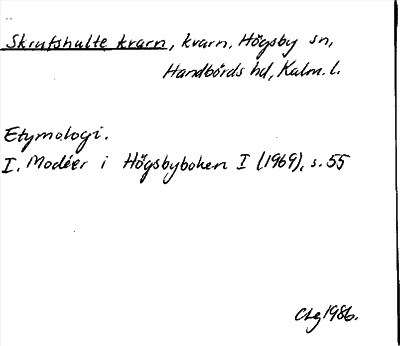 Skrufshulte kvarn, kvarn, Högsby sn,
Handbörds hd, Kalm. l.
Etymologi.
I. Modéer i Högsbyboken I (1969), s. 55
1986.